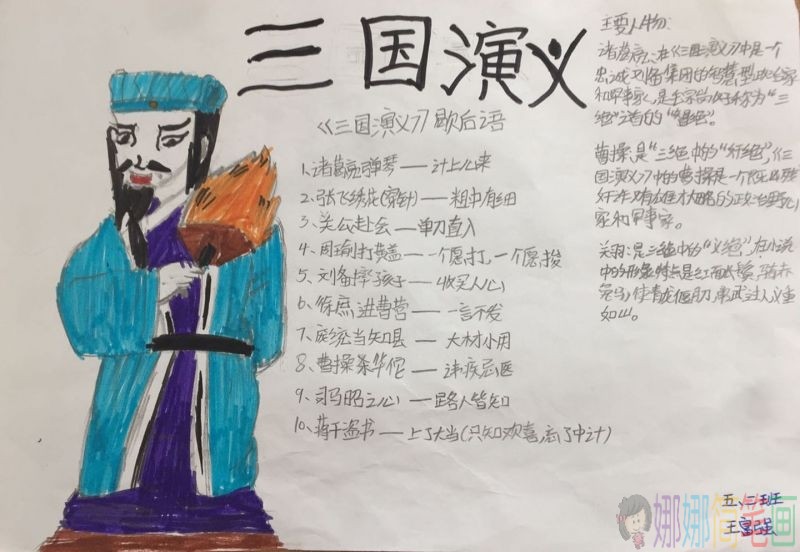 三国演义
《三国演义》歇后语
1.诸葛亮弹琴——计上心来
2、张飞绣花(穿针)——粗中有细
3、关公赴会——单刀直入
4、周瑜打黄盖——一个愿打,一个愿挨
5、刘备摔孩子——收买人心
6、徐庶进曹营——一言不发
7、庞统当知县——大材小用
8、曹操杀华佗——讳疾忌医
9、司马昭之心——路人皆知
10、蒋干盗书——上了大当(只知欢喜,忘了中计)
主要人物:
诸葛亮:在《三国演义》中是一个
忠诚刘备集团的智慧型政治家
和军事家,是
绝"之首的"智绝"。
曹操:是"三绝"中的"奸绝",《三
国演义》中的曹操是一个
奸诈又有雄才大略的政治野心
家和军事家。
关羽:是三绝中的"义绝",在小说
中的形象特点是红面长髯,骑赤
兔马,使青龙偃月刀,
如山。
五、二班
王
娜娜简笔画